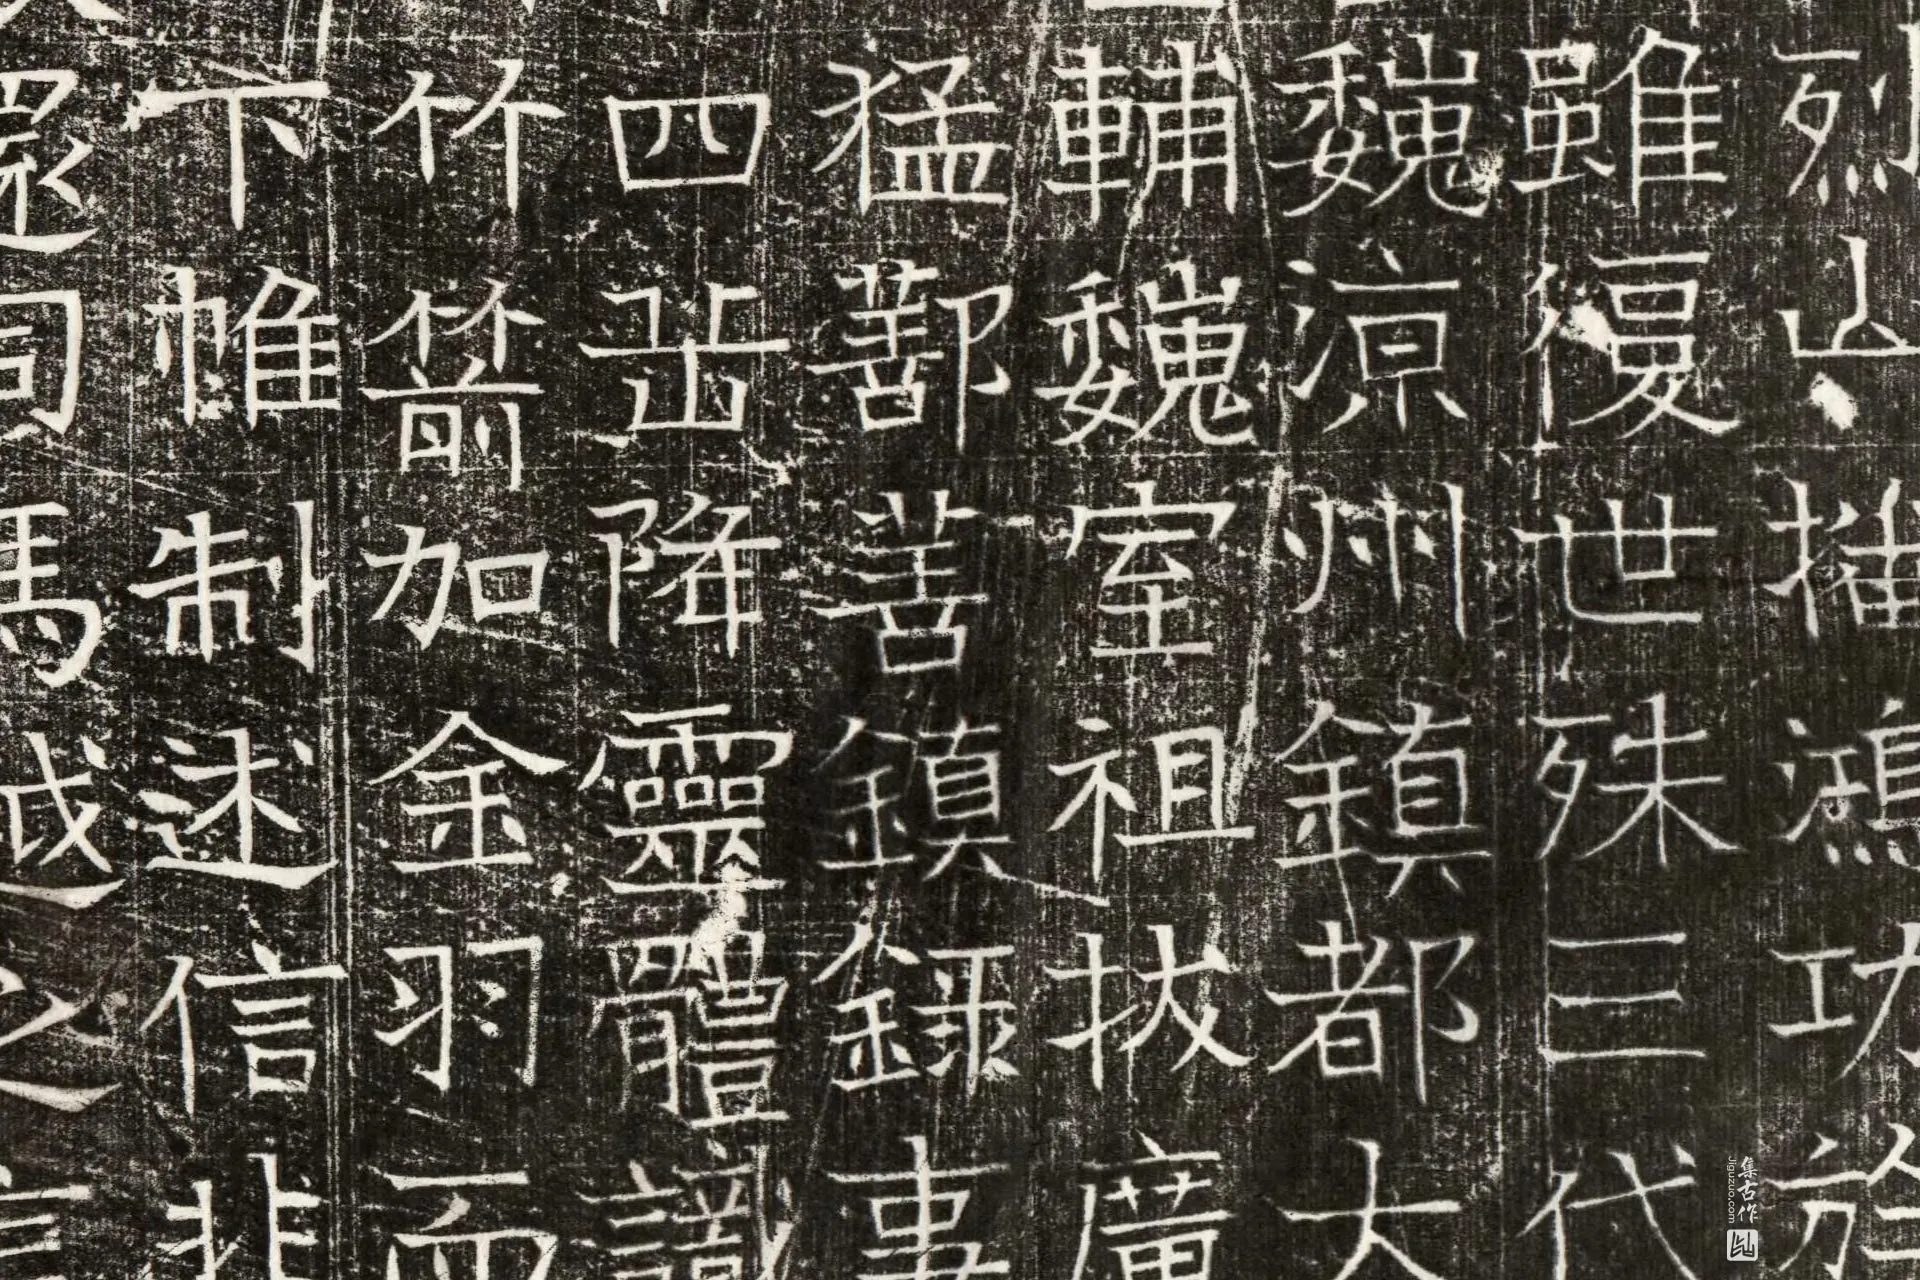 烈山鴻功於
雖復世殊三代
魏涼州鎮都大
輔魏室祖拔廣
猛鄯善鎮錄事
四岳降靈體識
竹箭加金羽而
卞帷制述信非
還馬越之
集古作
Jiguzuo.com